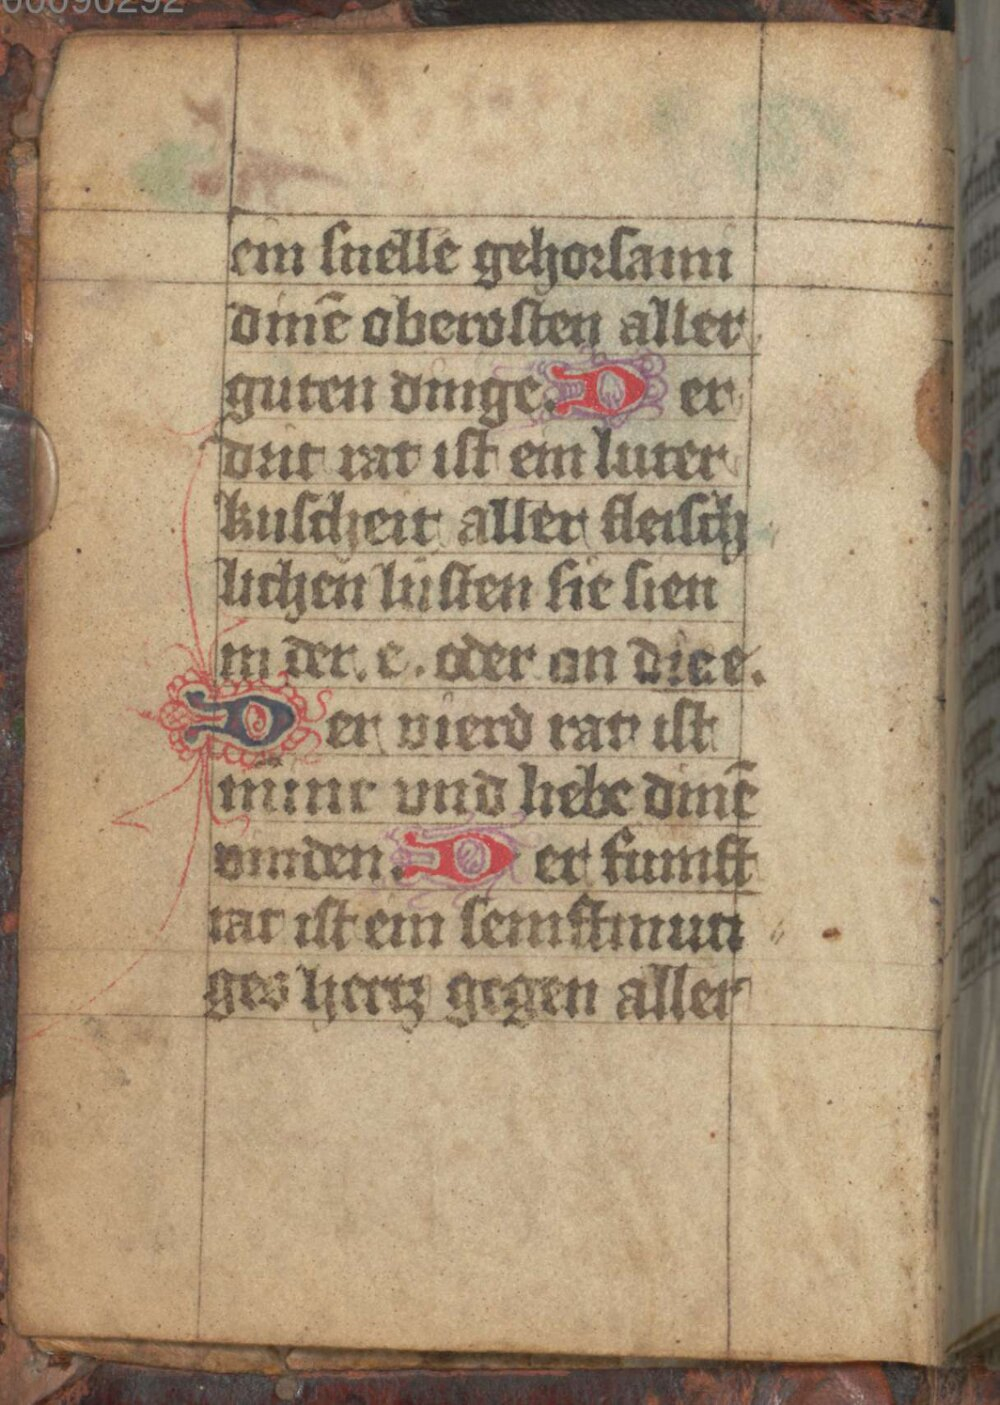 00090292
ein snelle gehorsami
dinē oberosten aller
guten dinge. D er
drit rat ist ein luter
kuscheit aller fleisch
lichen lústen sie sien
in der .e. oder on die e.
D er vierd rat ist
minne vnd liebe dinē
vinden. D er fúmfft
rat ist ein semftmuti
ges hertz gegen aller